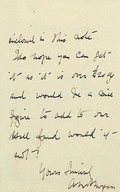 in this note
I hope you can get
it as it is our
and would be a nice
figure to add to our
and would it
not?
Yours Sincerely